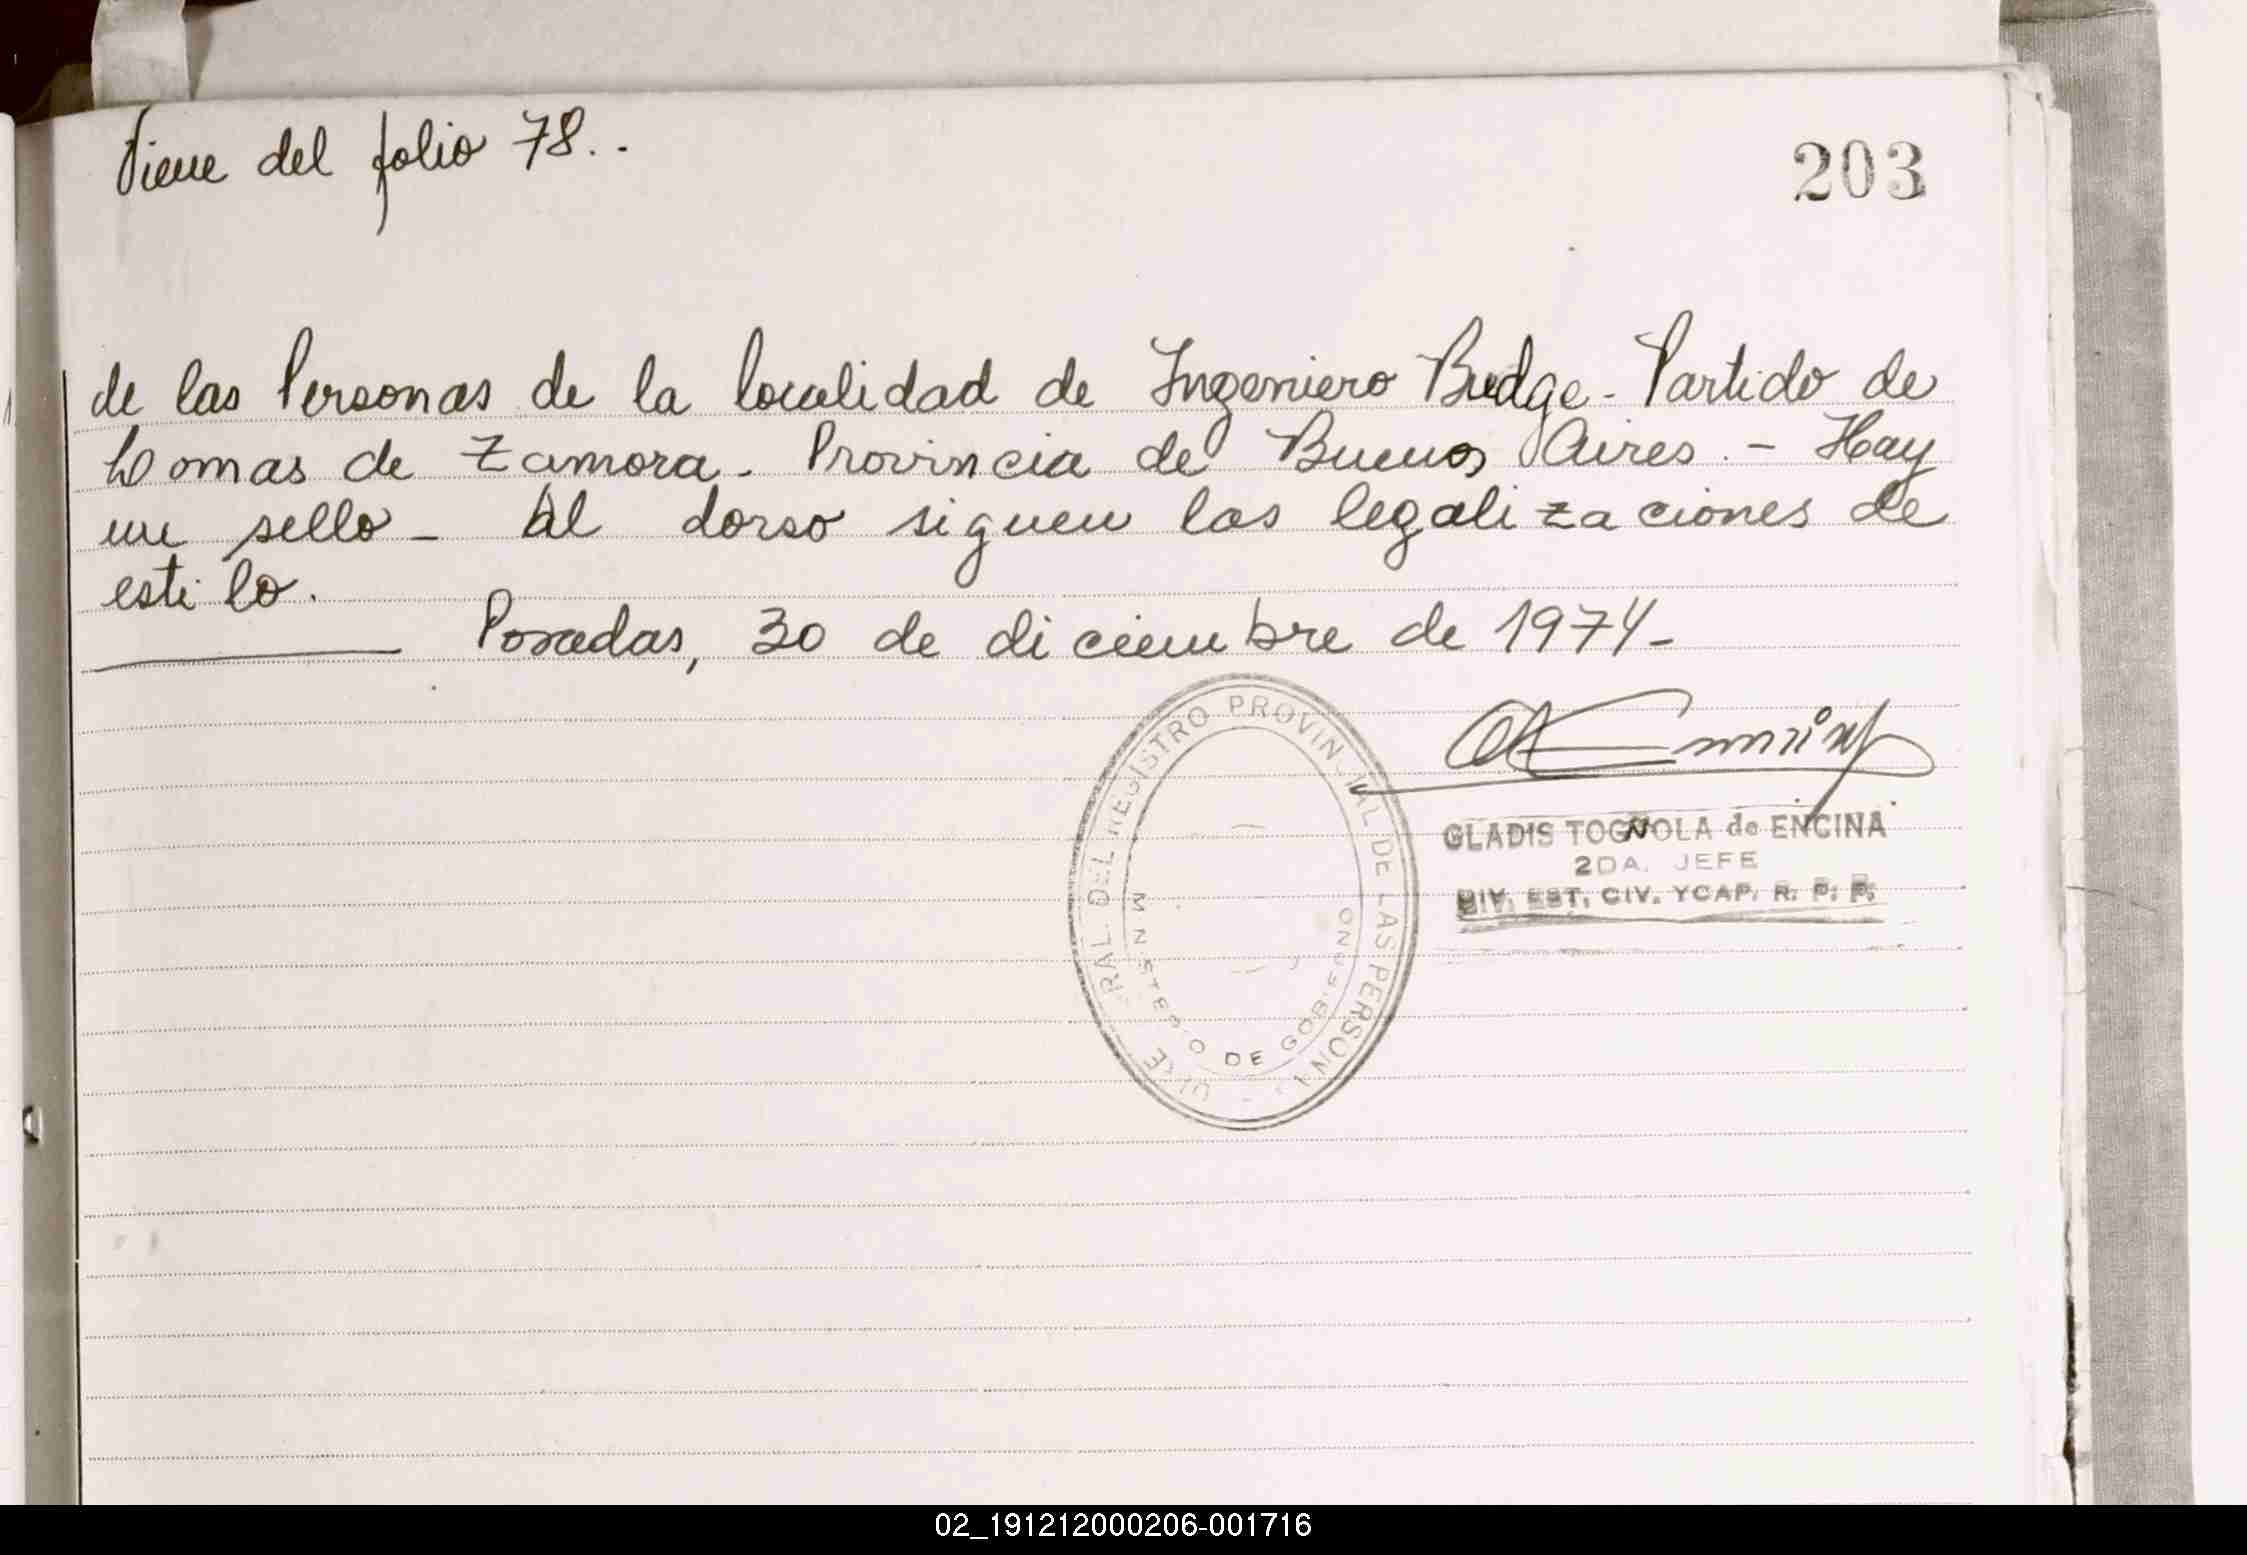 Viene del folio 78..
203
de las Personas de la localidad de Ingeniero Budge - Partido de
Lomas de Zamora - Provincia de Buenos Aires. - Hay
un sello - Al dorso siguen las legalizaciones de
estilo.
Posadas, 30 de diciembre de 1974-
RAL. DEL REGISTRO PROVIN AL DE LAS PERSON
MINISTERIO DE GOBIERNO
GLADIS TOGNOLA de ENCINA
2DA. JEFE
DIV. EST. CIV. YCAP. R. P. P.
02_191212000206-001716